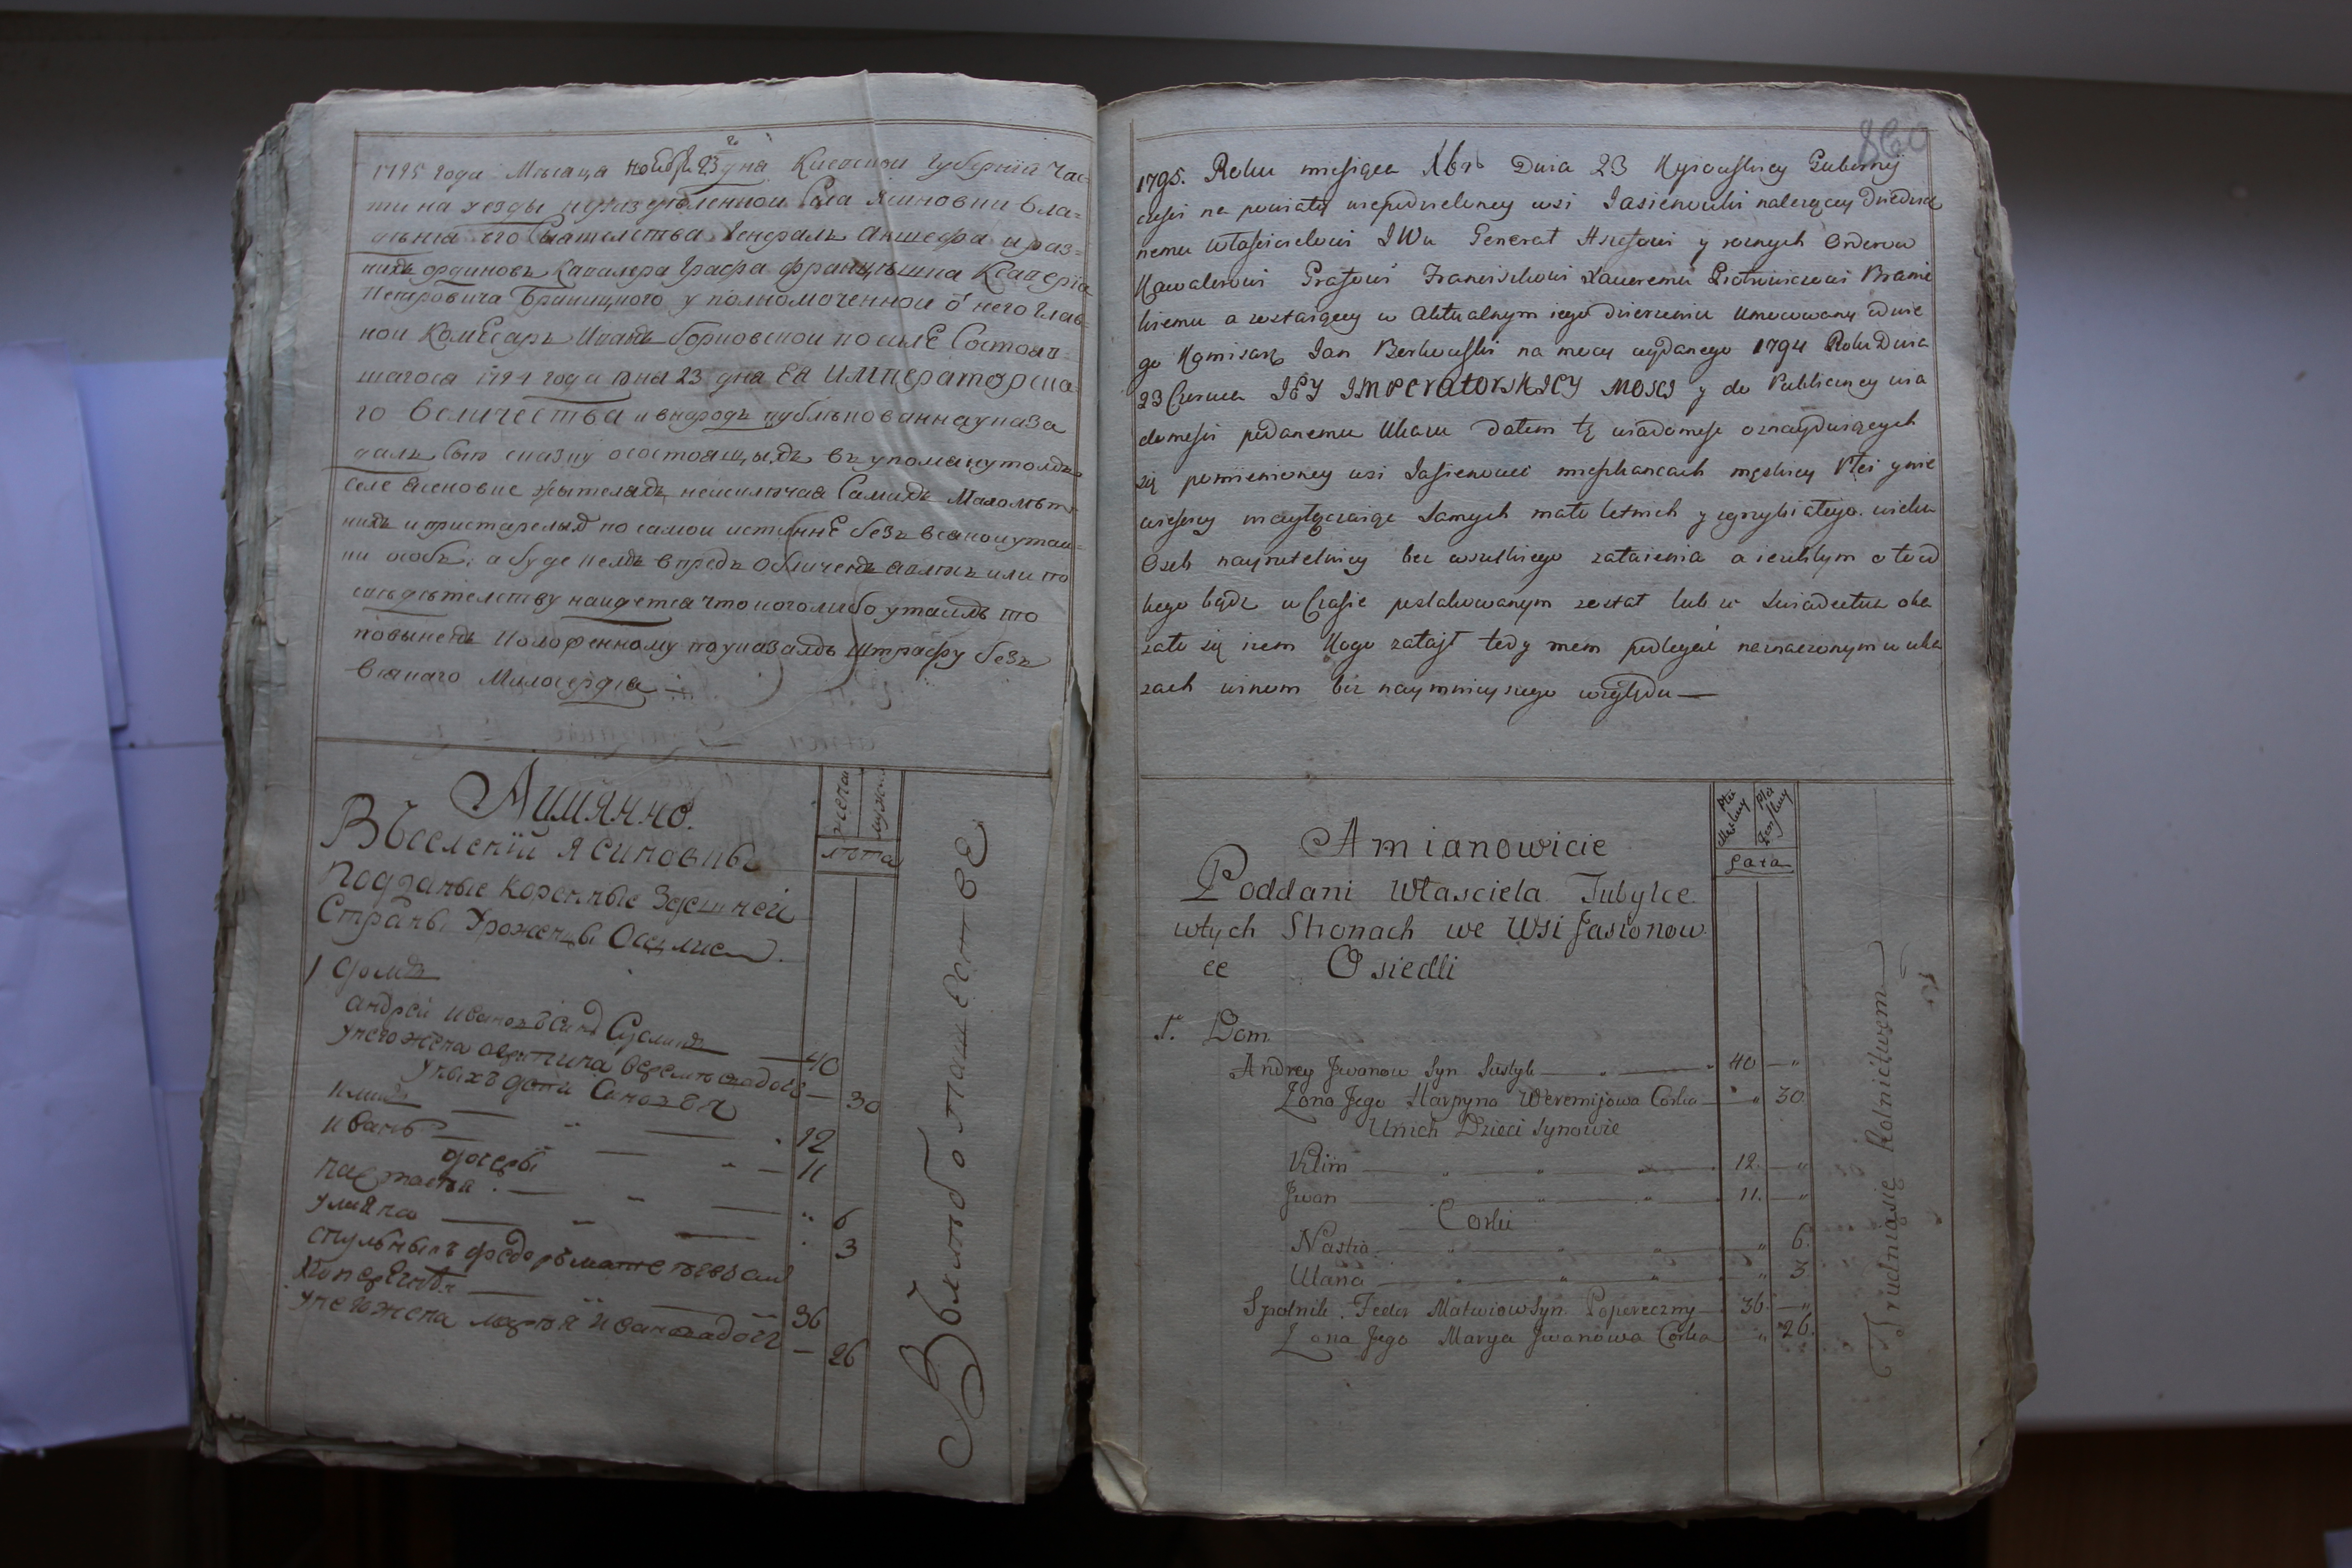 1795 года Мѣсяца ноября 23 дня Киевской Губернїи час=
ти на уезды неразделенной Села Ясиновки вла=
дѣния его Сиятелства Генералъ Аншефа и раз=
ныхъ ординовъ Кавалера Графа Францышка Ксаверїя
Петровича Браницкого уполномоченной о него глав=
ной Комѣсаръ Иванъ борковской по силѣ Состояв=
шагося 1794 года Юня 23 дня ЕЯ Императорска=
го Величества и внародъ публѣкованна указа
далъ сию сказку осостоящыхъ въ упомянутомъ
селе Ясеновке жытеляхъ неисключая Самыхъ Малолѣт
ныхъ и пристарелыхъ по самои истиннѣ безъ всякои утаи=
ки особъ; а буде кемъ впредъ обличенъ явлюсь или по
свидѣтелству наидется что кого либо утаилъ то
повыненъ положенному по указамъ Штрафу безъ
всякаго Милосердія
Аимянно.
Въселенїй Ясиновкѣ
Подданые коренные Здешней
Страны Уроженцы Оселие
мужеска
женска
лѣта
1 домъ
андрей ивановъ синъ Суслыкъ — 40
унего жена агрипина веремѣевадочь — 30
унихъ дети Синовья
климъ — " — 12
иванъ — " — 11
дочеры
настасья — " — 6
улияна — " — 3
спульныкъ федоръ матвеевъ син
поперечный — 36
унего жена марья ивановадочь — 26
Въхлѣбопашестве
860
1795. Roku miesiąca Xbrs Dnia 23 Kyiowskiey Gubernij
części na powiaty niepodzieloney wsi Jasienowki należącey Dziedzicz
nemu właścicielowi JWu Generał Anszefowi y roznych Orderow
Kawalerowi Grafowi Franciszkowi Xaweremu Piotrowiczowi Branic
kiemu a zostaiącey w Aktualnym iego dzierzeniu Umocowany odnie
go Komisarz Jan Borkowski na mocy wydanego 1794 Roku Dnia
23 Czerwca JEY IMPERATORSKIEY MOSCI y do Publiczney wia
domości podanemu Ukazu Datem tę wiadomość oznaydviących
się pomienioney wsi Jasienowce mieszkancach męskiey Płci y nie
wieściey niewyłączaiąc samych mało letnich y zgrzybiałego wieku
Osob nayrzetelniey bez wszelkiego zataienia a ieżelibym o to od
kogo bądz w Czasie poszlakowanym został lub w swiadectwa oka
zało się żem Kogo zataił tedy mem podlegać naznaczonym w uka
zach winom bez naymnieyszego względu —
Amianowicie
Poddani Własciela Tubylce
wtych Stronach we Wsi Jasionow
ce Osiedli
Płci Męskiey
Płci Zenskiey
Lata
1. Dom
Andrey Jwanow Syn Susłyk — " — 40 — "
Zona Jego Harpyna Weremijowa Corka — " 30.
Unich Dzieci Synowie
Klim — " — 12. — "
Jwan — " — 11. — "
Corki
Nastia — " — " 6.
Ulana — " — " 3.
Spolnik Fedor Matwiow Syn Popereczny — 36. — "
Zona Jego Marya Jwanowa Corka " 26.
Trudniąsię Rolnictwem